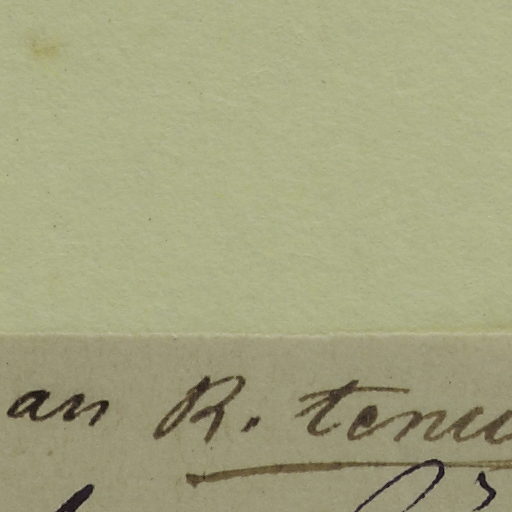 an R. tenu